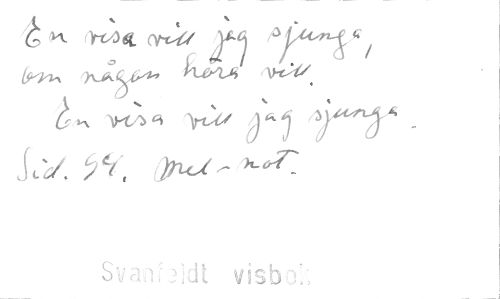 En visa vill jag sjunga,
om någon höra vill.
En visa vill jag sjunga.
Sid. 94. Mel-not.
Svanfeldt visbok